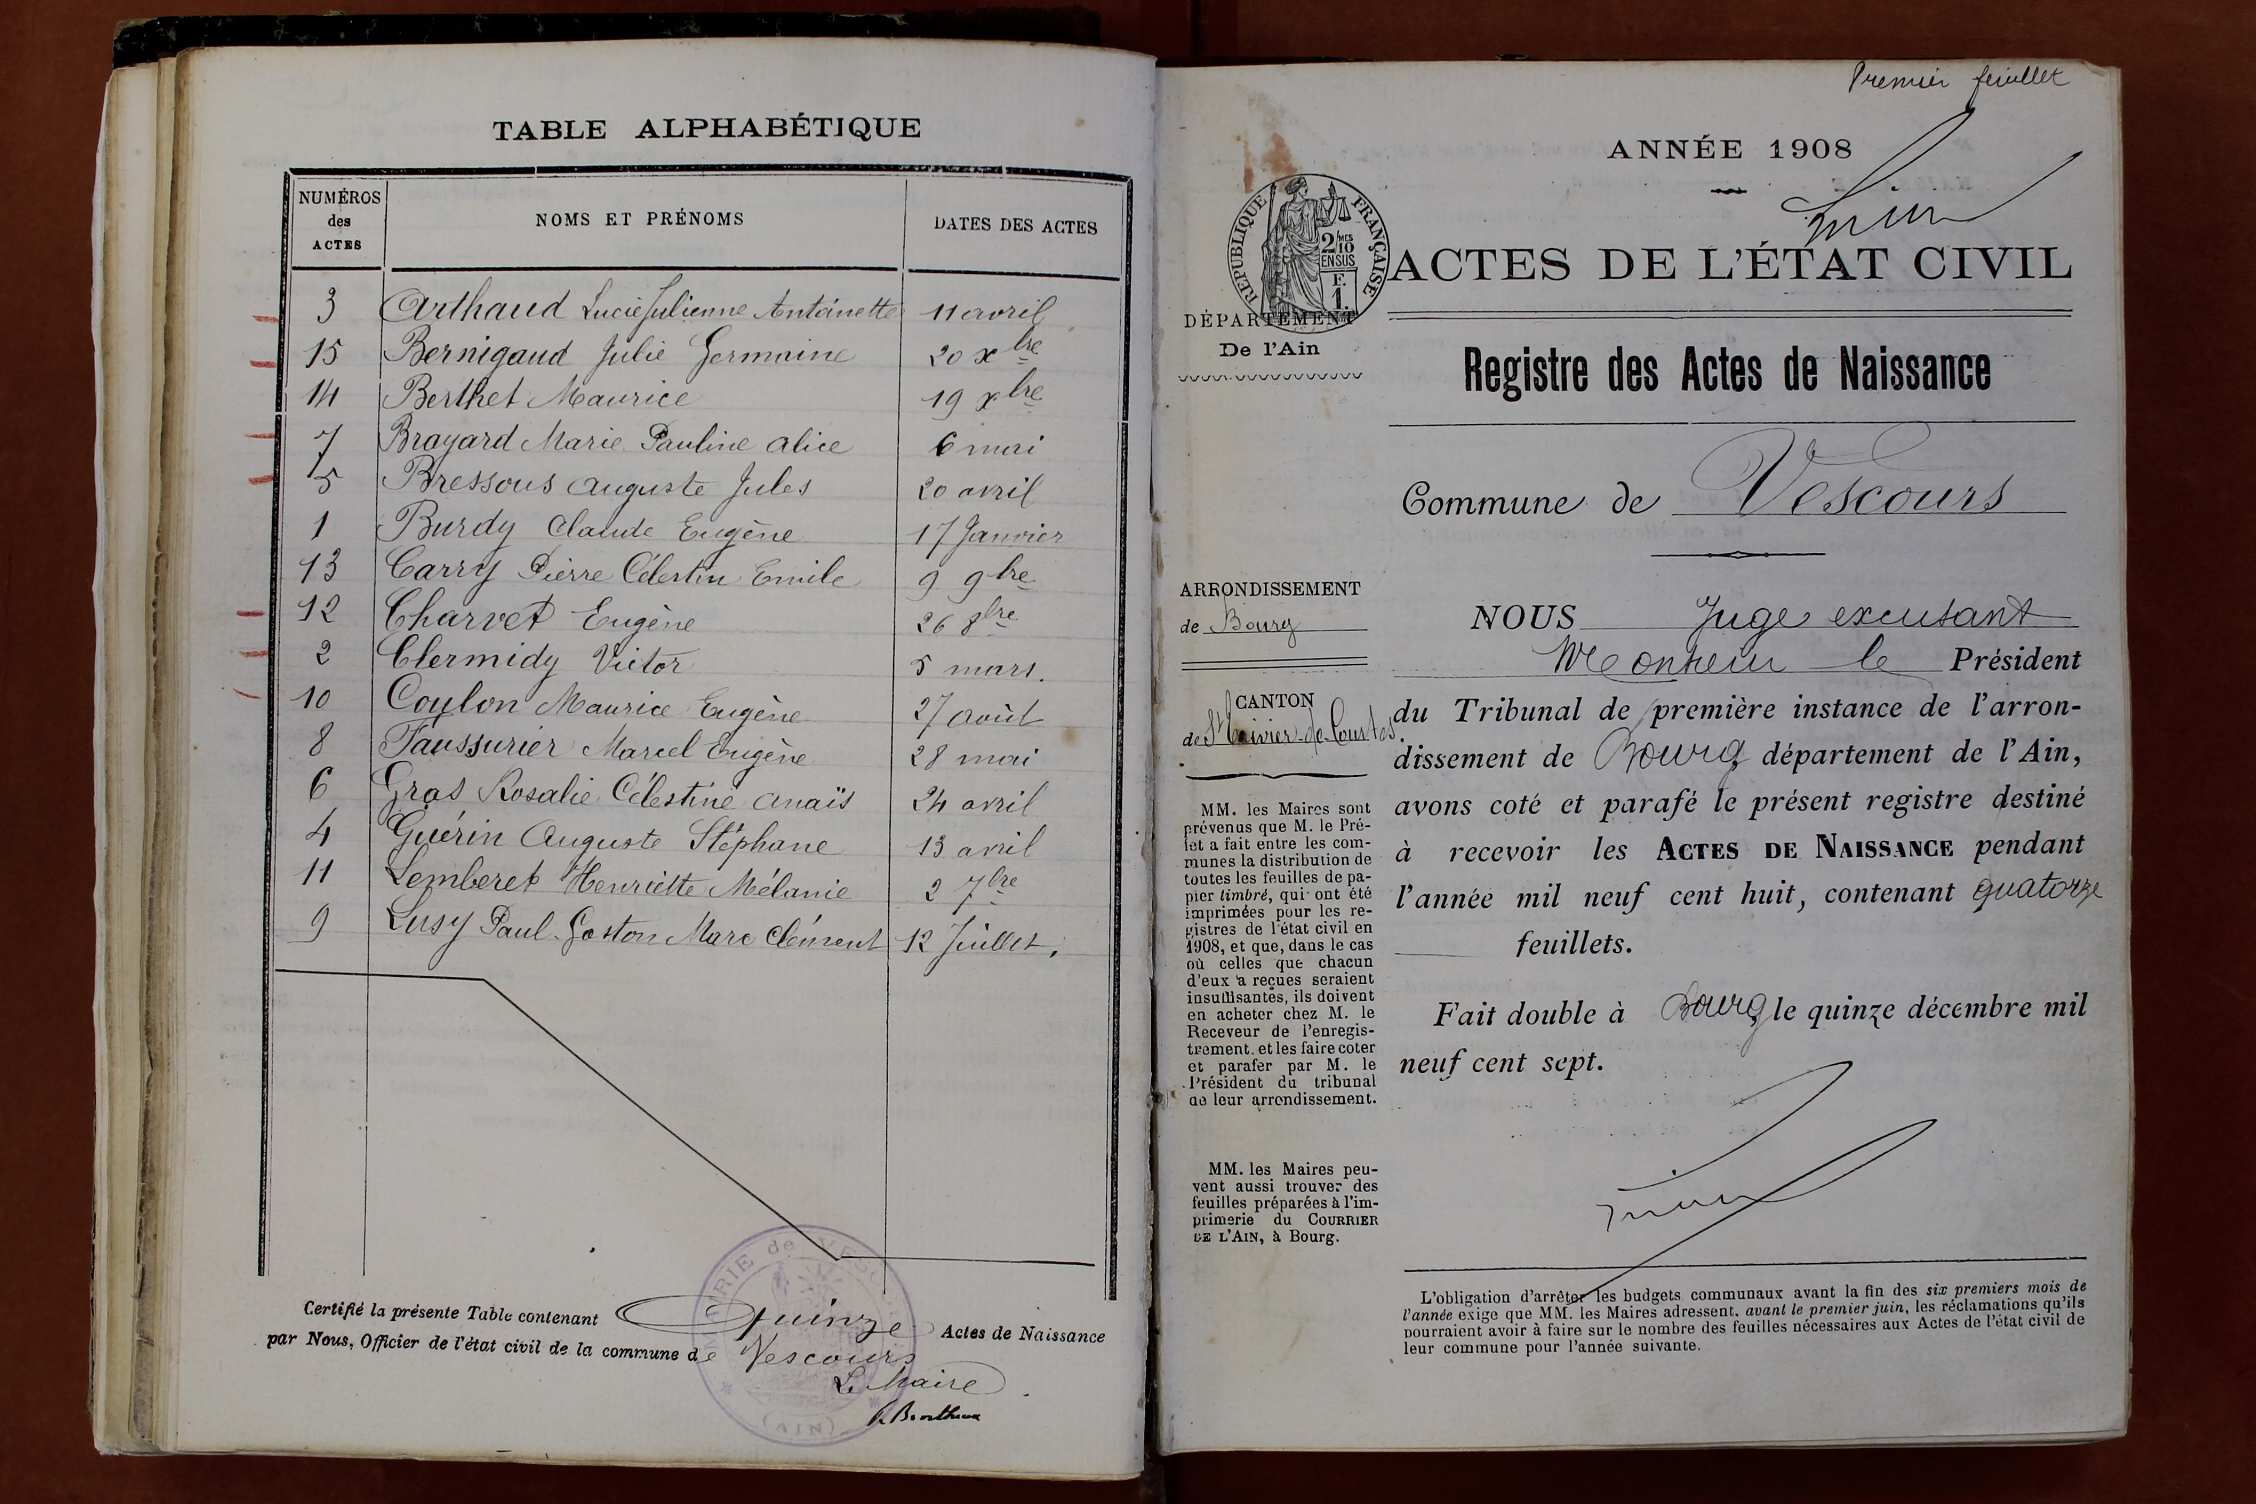 TABLE ALPHABÉTIQUE
NUMÉROS des ACTES
NOMS ET PRÉNOMS
DATES DES ACTES
3 Arthaud Lucie Julienne Antoinette 11 avril
15 Bernigaud Julie Germaine 20 xbre
14 Berthet Maurice 19 xbre
7 Brayard Marie Pauline Alice 6 mai
5 Bressous Auguste Jules 20 avril
1 Burdy Claude Eugène 17 Janvier
13 Carry Pierre Célestin Emile 9 9bre
12 Charvet Eugène 26 8bre
2 Clermidy Victor 5 mars.
10 Coulon Maurice Eugène 27 août
8 Faussurier Marcel Eugène 28 mai
6 Gras Rosalie Célestine Anaïs 24 avril
4 Guérin Auguste Stéphane 13 avril
11 Lemberet Henriette Mélanie 2 7bre
9 Lusy Paul Gaston Marc Clément 12 Juillet.
Certifié la présente Table contenant Quinze Actes de Naissance
par Nous, Officier de l'état civil de la commune de Vescours
Le Maire
MAIRIE de VESCOURS
(AIN)
Premier feuillet
ANNÉE 1908
RÉPUBLIQUE FRANÇAISE
2/10MES
EN SUS
F.
1.
ACTES DE L'ÉTAT CIVIL
DÉPARTEMENT
De l'Ain
Registre des Actes de Naissance
Commune de Vescours
ARRONDISSEMENT
de Bourg
CANTON
de St Trivier-de-Courtes.
MM. les Maires sont
prévenus que M. le Pré-
fet a fait entre les com-
munes la distribution de
toutes les feuilles de pa-
pier timbré, qui ont été
imprimées pour les re-
gistres de l'état civil en
1908, et que, dans le cas
où celles que chacun
d'eux a reçues seraient
insuffisantes, ils doivent
en acheter chez M. le
Receveur de l'enregis-
trement, et les faire coter
et parafer par M. le
Président du tribunal
de leur arrondissement.
MM. les Maires peu-
vent aussi trouver des
feuilles préparées à l'im-
primerie du COURRIER
DE L'AIN, à Bourg.
NOUS Juge excusant
Monsieur le Président
du Tribunal de première instance de l'arron-
dissement de Bourg département de l'Ain,
avons coté et parafé le présent registre destiné
à recevoir les ACTES DE NAISSANCE pendant
l'année mil neuf cent huit, contenant quatorze
feuillets.
Fait double à Bourg le quinze décembre mil
neuf cent sept.
L'obligation d'arrêter les budgets communaux avant la fin des six premiers mois de
l'année exige que MM. les Maires adressent, avant le premier juin, les réclamations qu'ils
pourraient avoir à faire sur le nombre des feuilles nécessaires aux Actes de l'état civil de
leur commune pour l'année suivante.